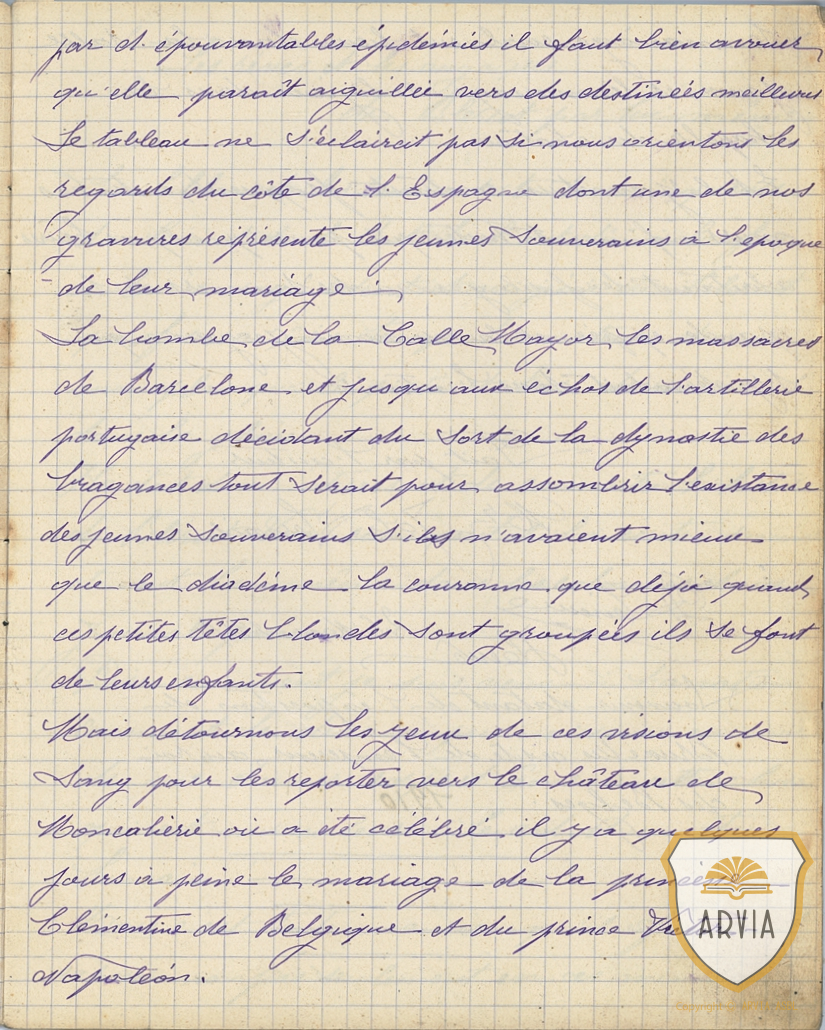 par d'épouvantables épidémies il faut bien avouer
qu'elle paraît aiguillée vers des destinées meilleures
Le tableau ne s'éclaircit pas si nous orientons les
regards du côte de l'Espagne dont une de nos
gravures réprésente les jeunes souverains à l'epoque
de leur mariage.
La bombe de la Calle Mayor, les massacres
de Barcelone et jusqu'aux échos de l'artillerie
portugaise décidant du sort de la dynastie des
bragances tout serait pour assombrir l'existance
des jeunes souverains s'ils n'avaient mieux
que le diadéme la couronne que déjà quand
ces petites têtes blondes sont groupées ils se font
de leurs enfants.
Mais détournons les yeux de ces visions de
sang pour les reporter vers le château de
Moncaliérie où a été célébré il y a quelques
jours à peine le mariage de la princesse
Clémentine de Belgique et du prince Victor
Napoléon.
ARVIA